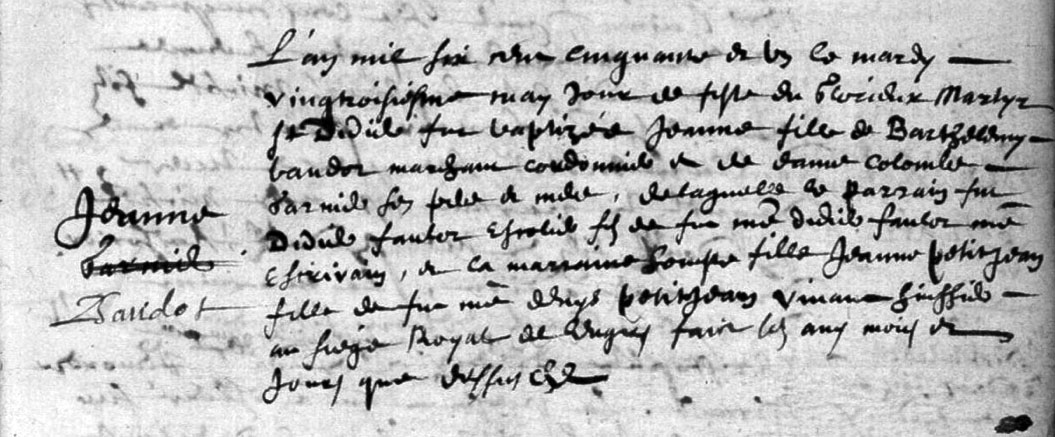 L'an mil six cens cinquante et un le mardy
vingtroisiesme may Jour de feste du Glorieux Martyr
St Didier fut baptizée Jeanne fille de Barthelemy
baudot marchant cordonnier et de damne Colombe
Jeanne
Parmier ses pere et mere, de laquelle le parrain fut
Didier fautor Escolier fils de fut me Didier fautor me
Parmier
Escrivain, et la marraine honeste fille Jeanne petitjean
Baudot
fille de fut me denys petitjean vivant huissier
au siege Royal de Lengres faict les ans mois et
Jours que dessus